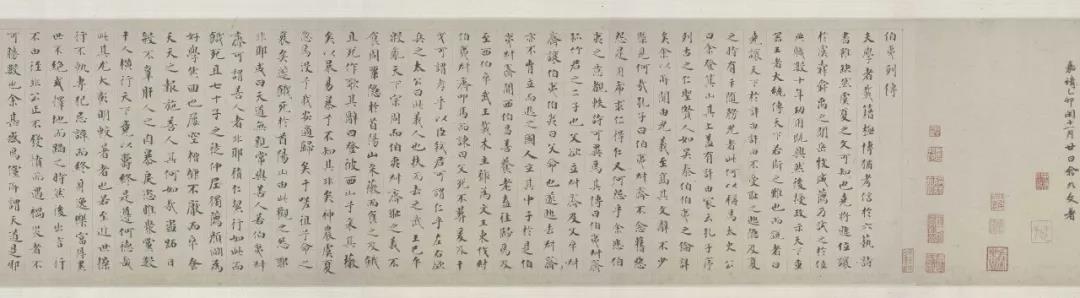 伯夷列傳
夫學者載籍極博猶考信於六藝詩
書雖缺然虞夏之文可知也堯將遜位讓
於虞舜舜禹之間岳牧咸薦乃試之於位
典職數十年功用既興然後授政示天下重
器王者大統傳天下若斯之難也而說者曰
堯讓天下於許由許由不受恥之逃隱及夏
之時有卞隨務光者此何以稱焉太史公
曰余登箕山其上蓋有許由冢云孔子序
列古之仁聖賢人如吳泰伯伯夷之倫詳
矣余以所聞由光義至高其文辭不少
槩見何哉孔子曰伯夷叔齊不念舊惡
怨是用希求仁得仁又何怨乎余悲伯
夷之意睹軼詩可異焉其傳曰伯夷叔齊
孤竹君之二子也父欲立叔齊及父卒叔
齊讓伯夷伯夷曰父命也遂逃去叔齊
亦不肯立而逃之國人立其中子於是伯
夷叔齊聞西伯昌善養老盍往歸焉及
至西伯卒武王載木主號為文王東伐紂
伯夷叔齊叩馬而諫曰父死不葬爰及干
戈可謂孝乎以臣弒君可謂仁乎左右欲
兵之太公曰此義人也扶而去之武王已平
殷亂天下宗周而伯夷叔齊恥之義不
食周粟隱於首陽山采薇而食之及餓
且死作歌其辭曰登彼西山兮采其薇
矣以暴易暴兮不知其非矣神農虞夏
忽焉沒兮我安適歸矣于嗟徂兮命之
衰矣遂餓死於首陽山由此觀之怨耶
非耶或曰天道無親常與善人若伯夷叔
齊可謂善人者非耶積仁絜行如此而
餓死且七十子之徒仲尼獨薦顏淵為
好學然回也屢空糟糠不厭而卒蚤
夭天之報施善人其何如哉盜跖日
殺不辜肝人之肉暴戾恣睢聚黨數
千人橫行天下竟以壽終是遵何德哉
此其尤大彰明較著者也若至近世操
行不軌專犯忌諱而終身逸樂富厚累
世不絕或擇地而蹈之時然後出言行
不由徑非公正不發憤而遇禍災者不
可勝數也余甚惑焉儻所謂天道是邪